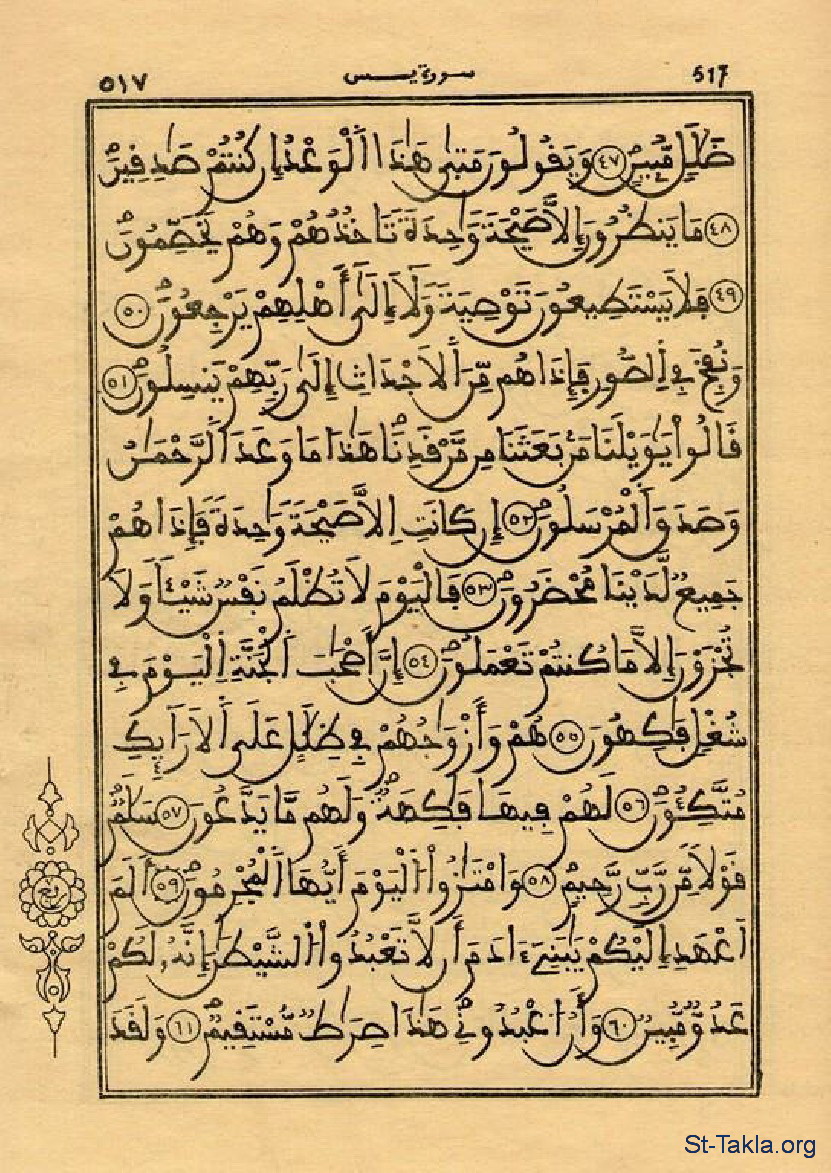 ٥١٧ سورة يس 517
ضَلَٰلٍ مُّبِينٍ ٤٧ وَيَقُولُونَ مَتَىٰ هَٰذَا اَ۬لْوَعْدُ إِن كُنتُمْ صَٰدِقِينَ
٤٨ مَا يَنظُرُونَ إِلَّا صَيْحَةً وَٰحِدَةً تَاخُذُهُمْ وَهُمْ يَخَصِّمُونَ
٤٩ فَلَا يَسْتَطِيعُونَ تَوْصِيَةً وَلَا إِلَىٰ أَهْلِهِمْ يَرْجِعُونَ ٥٠
وَنُفِخَ فِي اِ۬لصُّورِ فَإِذَا هُم مِّنَ اَ۬لَاجْدَاثِ إِلَىٰ رَبِّهِمْ يَنسِلُونَ ٥١
قَالُواْ يَٰوَيْلَنَا مَنۢ بَعَثَنَا مِن مَّرْقَدِنَا هَٰذَا مَا وَعَدَ اَ۬لرَّحْمَٰنُ
وَصَدَقَ اَ۬لْمُرْسَلُونَ ٥٢ إِن كَانَتِ اِلَّا صَيْحَةً وَٰحِدَةً فَإِذَا هُمْ
جَمِيعٌ لَّدَيْنَا مُحْضَرُونَ ٥٣ فَالْيَوْمَ لَا تُظْلَمُ نَفْسٌ شَيْـٔاً وَلَا
تُجْزَوْنَ إِلَّا مَا كُنتُمْ تَعْمَلُونَ ٥٤ إِنَّ أَصْحَٰبَ اَ۬لْجَنَّةِ اِ۬لْيَوْمَ فِي
شُغْلٍ فَٰكِهُونَ ٥٥ هُمْ وَأَزْوَٰجُهُمْ فِي ظِلَٰلٍ عَلَى اَ۬لَارَآئِكِ
مُتَّكِـُٔونَ ٥٦ لَهُمْ فِيهَا فَٰكِهَةٌ وَلَهُم مَّا يَدَّعُونَ ٥٧ سَلَٰمٌ
قَوْلاً مِّن رَّبٍّ رَّحِيمٍ ٥٨ وَامْتَٰزُواْ اُ۬لْيَوْمَ أَيُّهَا اَ۬لْمُجْرِمُونَ ٥٩ أَلَمَ
اَعْهَدِ اِلَيْكُمْ يَٰبَنِي ءَادَمَ أَن لَّا تَعْبُدُواْ اُ۬لشَّيْطَٰنَ إِنَّهُۥ لَكُمْ
عَدُوٌّ مُّبِينٌ ٦٠ وَأَنُ اُ۟عْبُدُونِي هَٰذَا صِرَٰطٌ مُّسْتَقِيمٌ ٦١ وَلَقَدَ
ربع
St-Takla.org